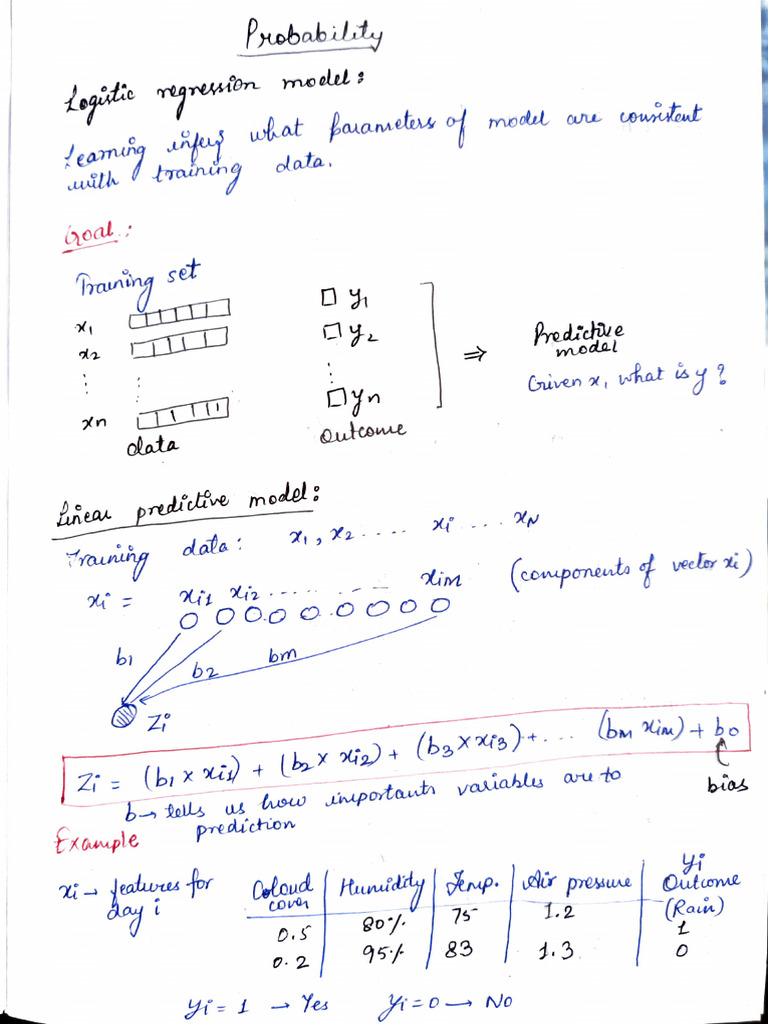 Probability
Logistic regression model:
Learning infers what parameters of model are consistent
with training data.
Goal:
Training set
x1 □ y1
x2 □ y2
⋮ ⋮ ⋮ ⇒ Predictive
model
xn □ yn Given x, what is y?
data Outcome
Linear predictive model:
Training data: x1, x2 .... xi ... xN
xi = xi1 xi2 ........ xim (components of vector xi)
b1 b2 bm
Zi
Zi = (b1 × xi1) + (b2 × xi2) + (b3 × xi3) + ... (bm xim) + b0
bias
b → tells us how importants variables are to
prediction
Example
xi → features for
day i
Coloud cover | Humidity | Temp. | Air pressure | yi Outcome (Rain)
0.5 | 80% | 75 | 1.2 | 1
0.2 | 95% | 83 | 1.3 | 0
yi = 1 → Yes yi = 0 → No